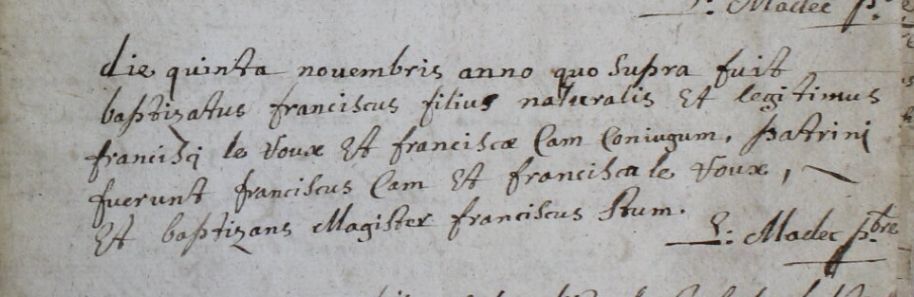 Madec p.
die quinta novembris anno quo supra fuit
baptizatus franciscus filius naturalis Et legitimus
francisci le Voux Et franciscæ Cam Coniugum, patrini
fuerunt franciscus Cam Et francisca le Voux,
Et baptizans Magister franciscus Stum.
Madec pbre